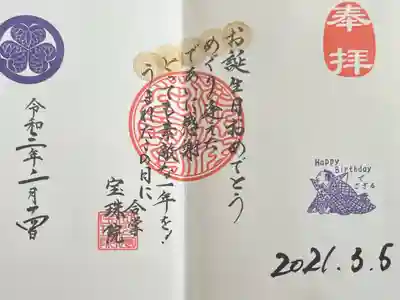 奉拝
お誕生日おめでとう
めぐり逢えた
であいに感謝
とっても素敵な一年を!
うまれたこの日に
合掌
宝珠院
令和三年二月十四日
Happy
Birthday
でござる
2021.3.5